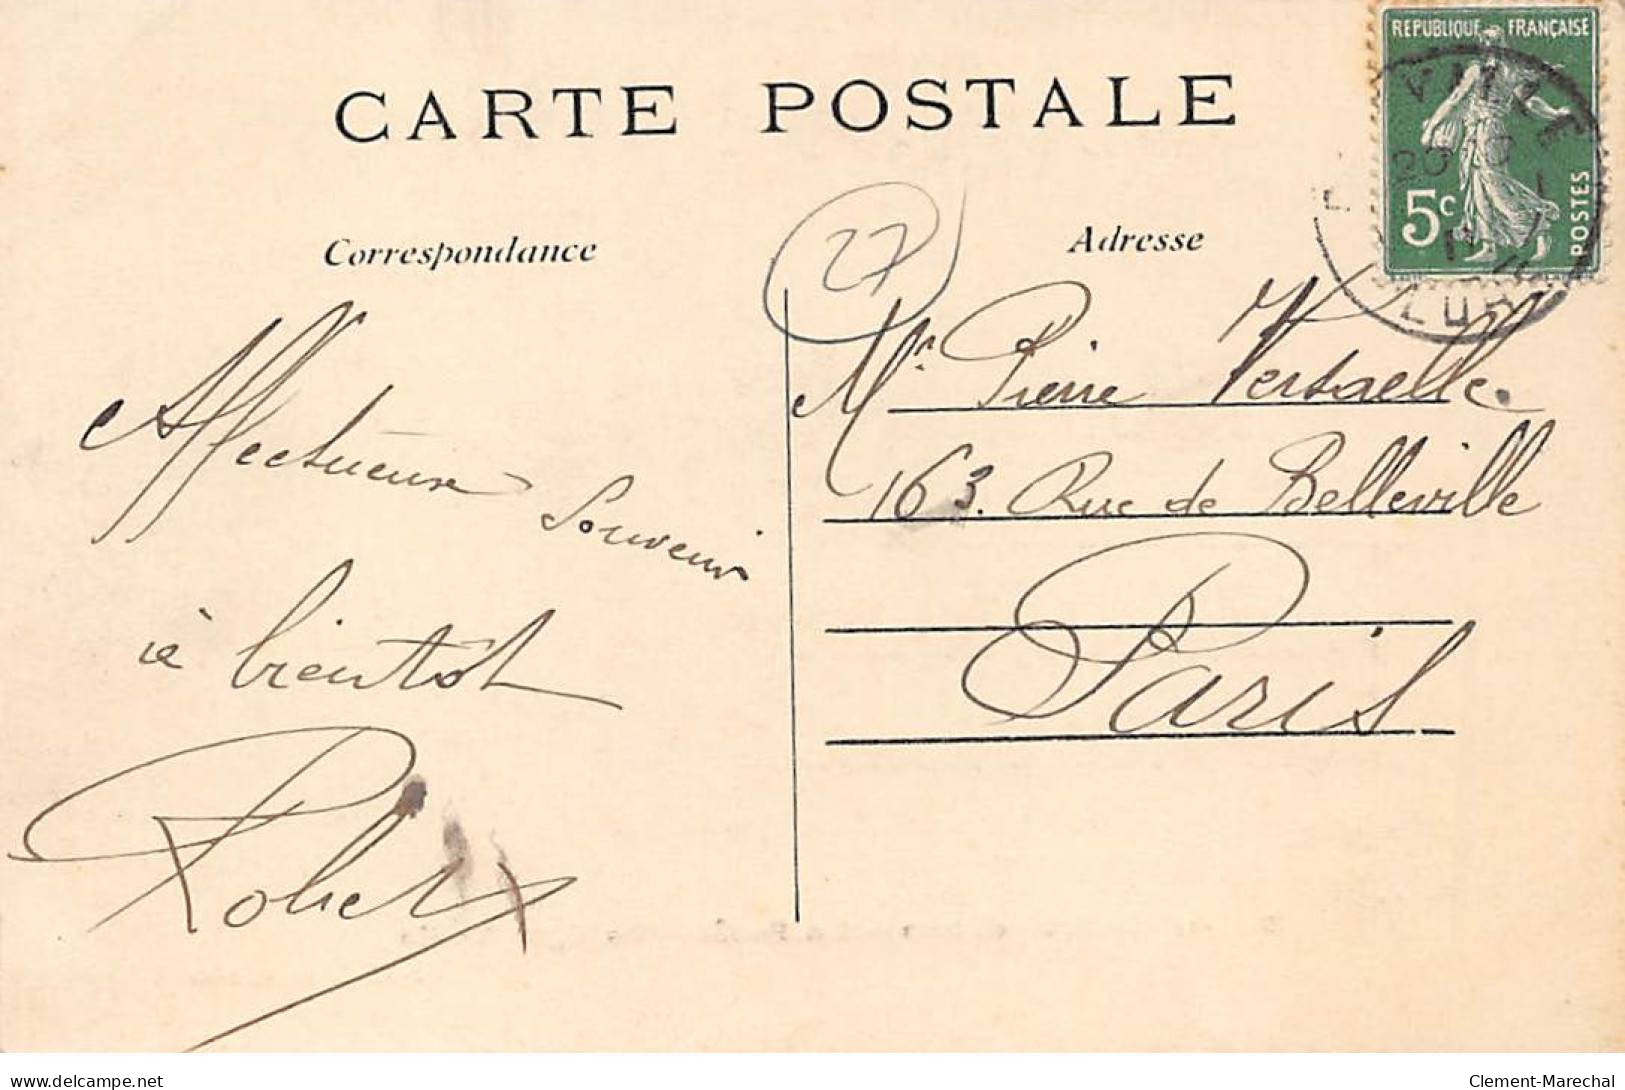 CARTE POSTALE
RÉPUBLIQUE FRANÇAISE
5c
POSTES
27
Correspondance
Adresse
Affectueux
Souvenir
à bientôt
Robert
Mr Pierre Versaelle.
163. Rue de Belleville
Paris
delcampe.net
Clement-Marechal